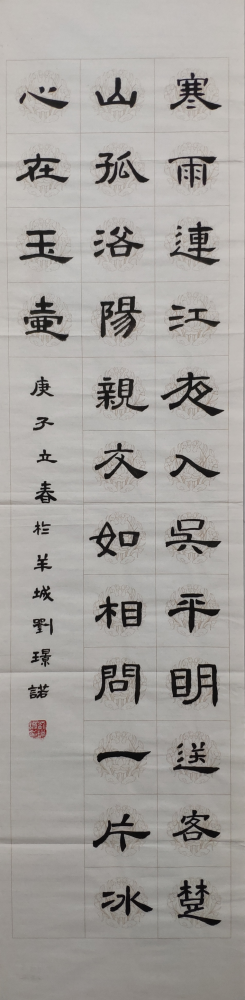 寒雨連江夜入吳平明送客楚
山孤浴陽親友如相問一片冰
心在玉壺
庚子立春於羊城劉璟諾